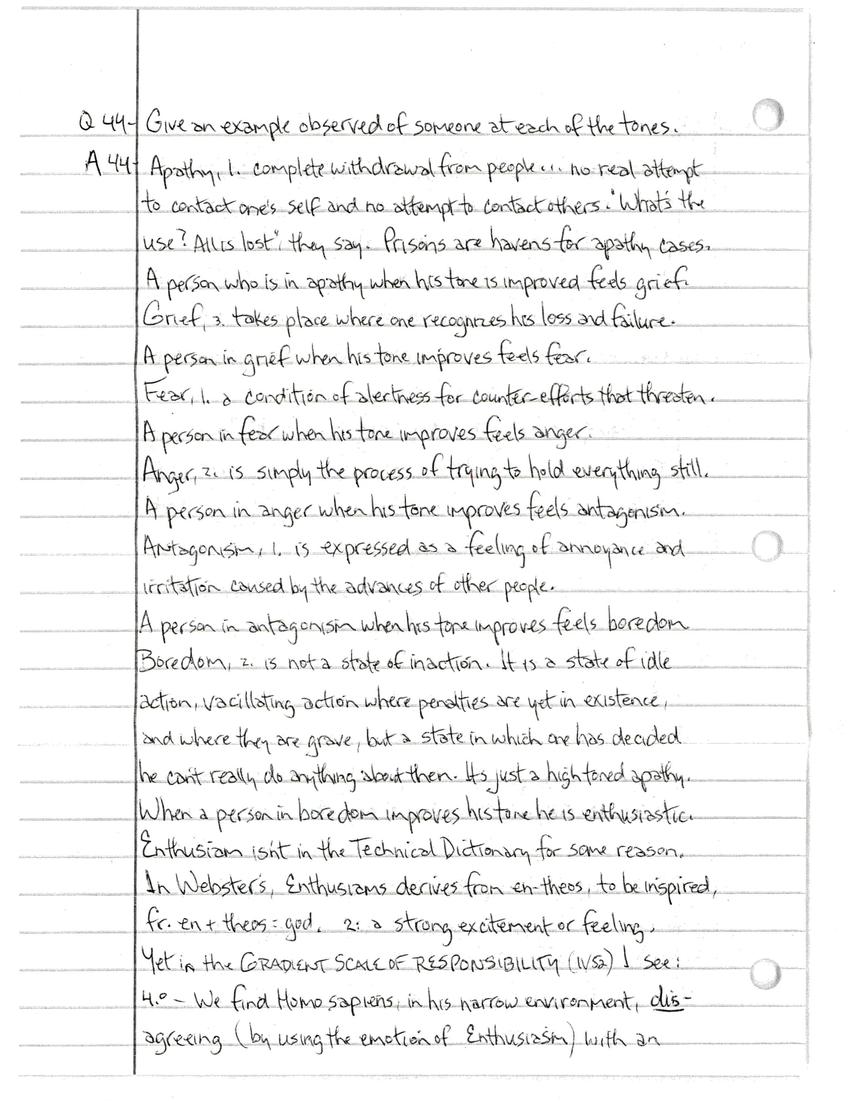 Q 44- Give an example observed of someone at each of the tones.
A 44- Apathy, 1. complete withdrawal from people... no real attempt
to contact one's self and no attempt to contact others. "What's the
use? All is lost", they say. Prisons are havens for apathy cases.
A person who is in apathy when his tone is improved feels grief.
Grief, 3. takes place where one recognizes his loss and failure.
A person in grief when his tone improves feels fear.
Fear, 1. a condition of alertness for counter-efforts that threaten.
A person in fear when his tone improves feels anger.
Anger, 2. is simply the process of trying to hold everything still.
A person in anger when his tone improves feels antagonism.
Antagonism, 1. is expressed as a feeling of annoyance and
irritation caused by the advances of other people.
A person in antagonism when his tone improves feels boredom
Boredom, 2. is not a state of inaction. It is a state of idle
action, vacillating action where penalties are yet in existence,
and where they are grave, but a state in which one has decided
he can't really do anything about then. Its just a high toned apathy.
When a person in boredom improves his tone he is enthusiastic.
Enthusiam isn't in the Technical Dictionary for some reason.
In Webster's, Enthusiams derives from en-theos, to be inspired,
fr. en + theos = god. 2: a strong excitement or feeling.
Yet in the GRADIENT SCALE OF RESPONSIBILITY (1V52) I see:
4.0 - We find Homo sapiens, in his narrow environment, dis-
agreeing (by using the emotion of Enthusiasm) with an